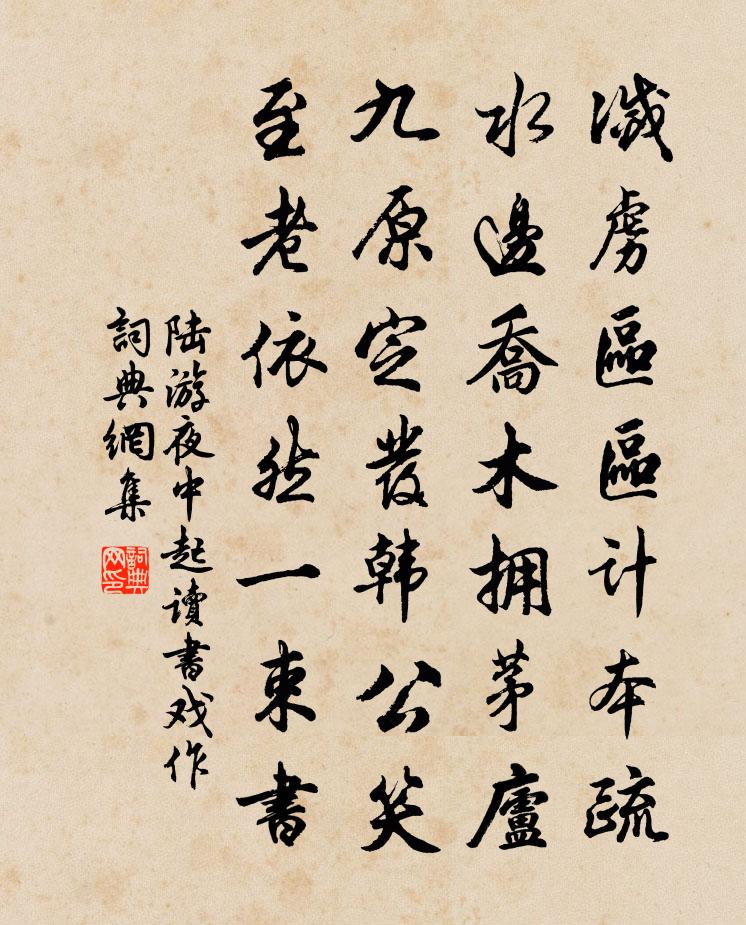 滅虜區區計本疏
水邊喬木擁茅廬
九原定發韩公笑
至老依然一束書
陆游夜中起讀書戏作
詞典網集
詞典网印